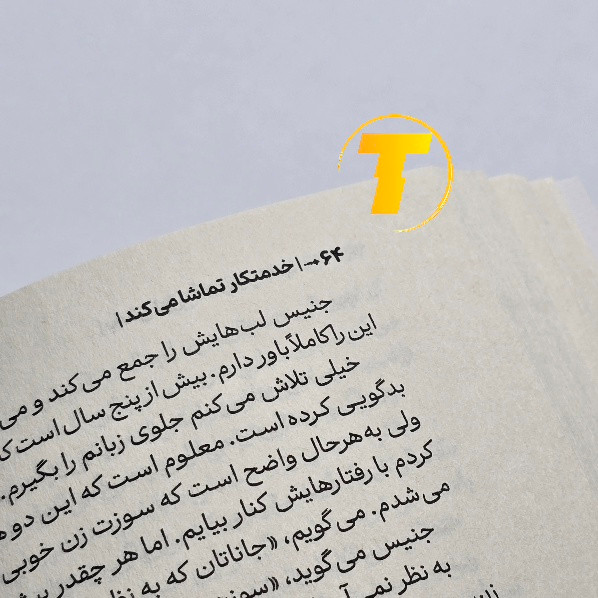 T
۶۴ → | خدمتکار تماشا می‌کند |
جنیس لب‌هایش را جمع می‌کند و می
این را کاملاً باور دارم. بیش از پنج سال است که
خیلی تلاش می‌کنم جلوی زبانم را بگیرم.
بدگویی کرده است. معلوم است که این دو
ولی به‌هرحال واضح است که سوزت زن خوبی
کردم با رفتارهایش کنار بیایم. اما هر چقدر
می‌شدم. می‌گویم، «جاناتان که به
جنیس می‌گوید،
به نظر